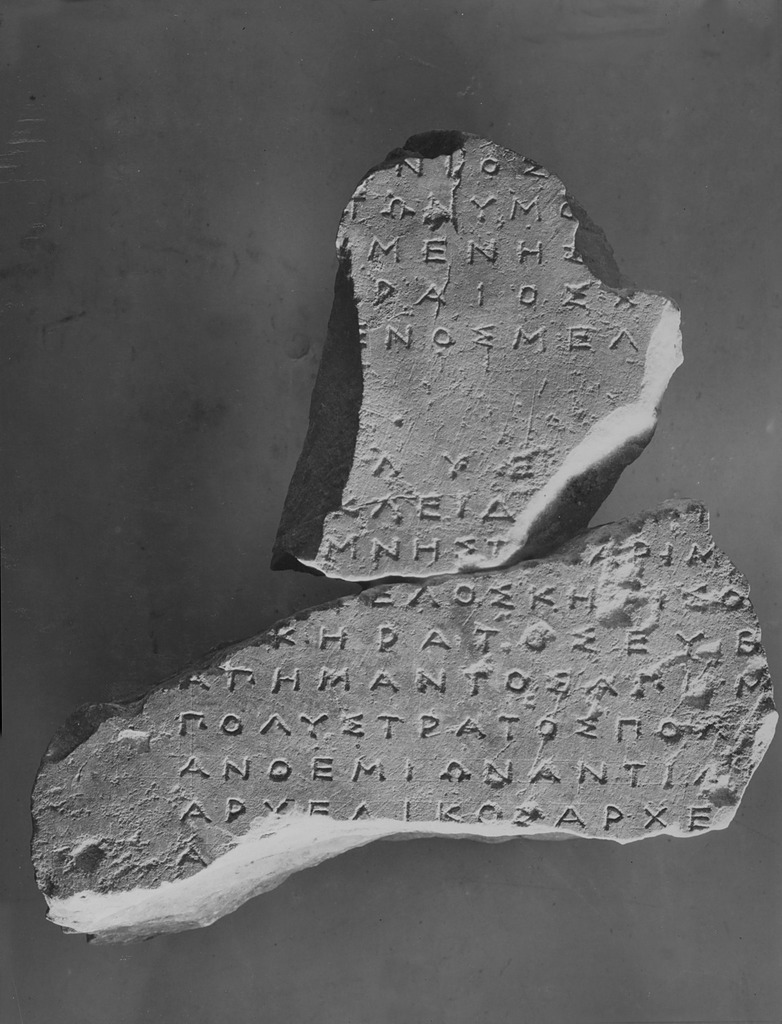 ΝΙΟΣ
ΤΩΝΥΜΟ
ΜΕΝΗΣ
ΡΑΙΟΣΧ
ΕΝΟΣΜΕΛ
ΛΥΕ
ΚΛΕΙΔ
ΜΝΗΣΤ ΑΡΙΜ
ΕΛΟΣΚΗ ΙΣΟ
ΚΗΡΑΤΟΣΕΥΒ
ΑΠΗΜΑΝΤΟΣ
ΠΟΛΥΣΤΡΑΤΟΣΠΟΛ
ΑΝΘΕΜΙΩΝΑΝΤΙΛ
ΑΡΧΕΛΙΚΟΣΑΡΧΕ
Α